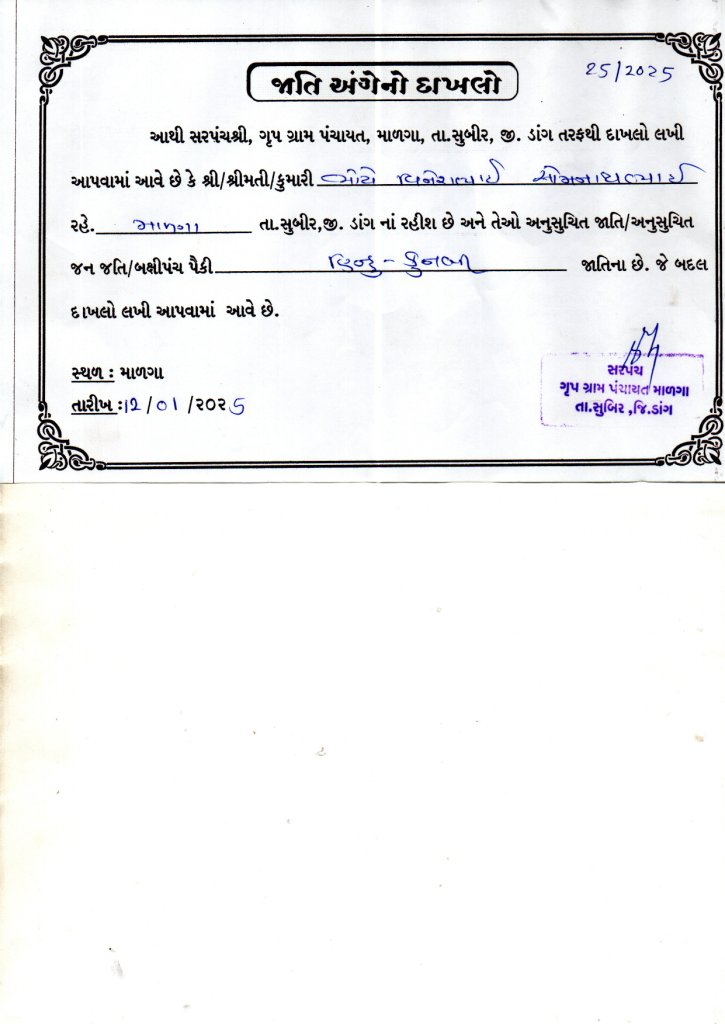 25/2025
જાતિ અંગેનો દાખલો
આથી સરપંચશ્રી, ગૃપ ગ્રામ પંચાયત, માળગા, તા.સુબીર, જી. ડાંગ તરફથી દાખલો લખી
આપવામાં આવે છે કે શ્રી/શ્રીમતી/કુમારી ભોયે વિનેશભાઈ સોમનાથભાઈ
રહે. માળગા તા.સુબીર,જી. ડાંગ નાં રહીશ છે અને તેઓ અનુસુચિત જાતિ/અનુસુચિત
જન જતિ/બક્ષીપંચ પૈકી હિન્દુ - કુનબી જાતિના છે. જે બદલ
દાખલો લખી આપવામાં આવે છે.
સ્થળ : માળગા
તારીખ :12/01/૨૦૨5
સરપંચ
ગૃપ ગ્રામ પંચાયત માળગા
તા.સુબિર ,જિ.ડાંગ